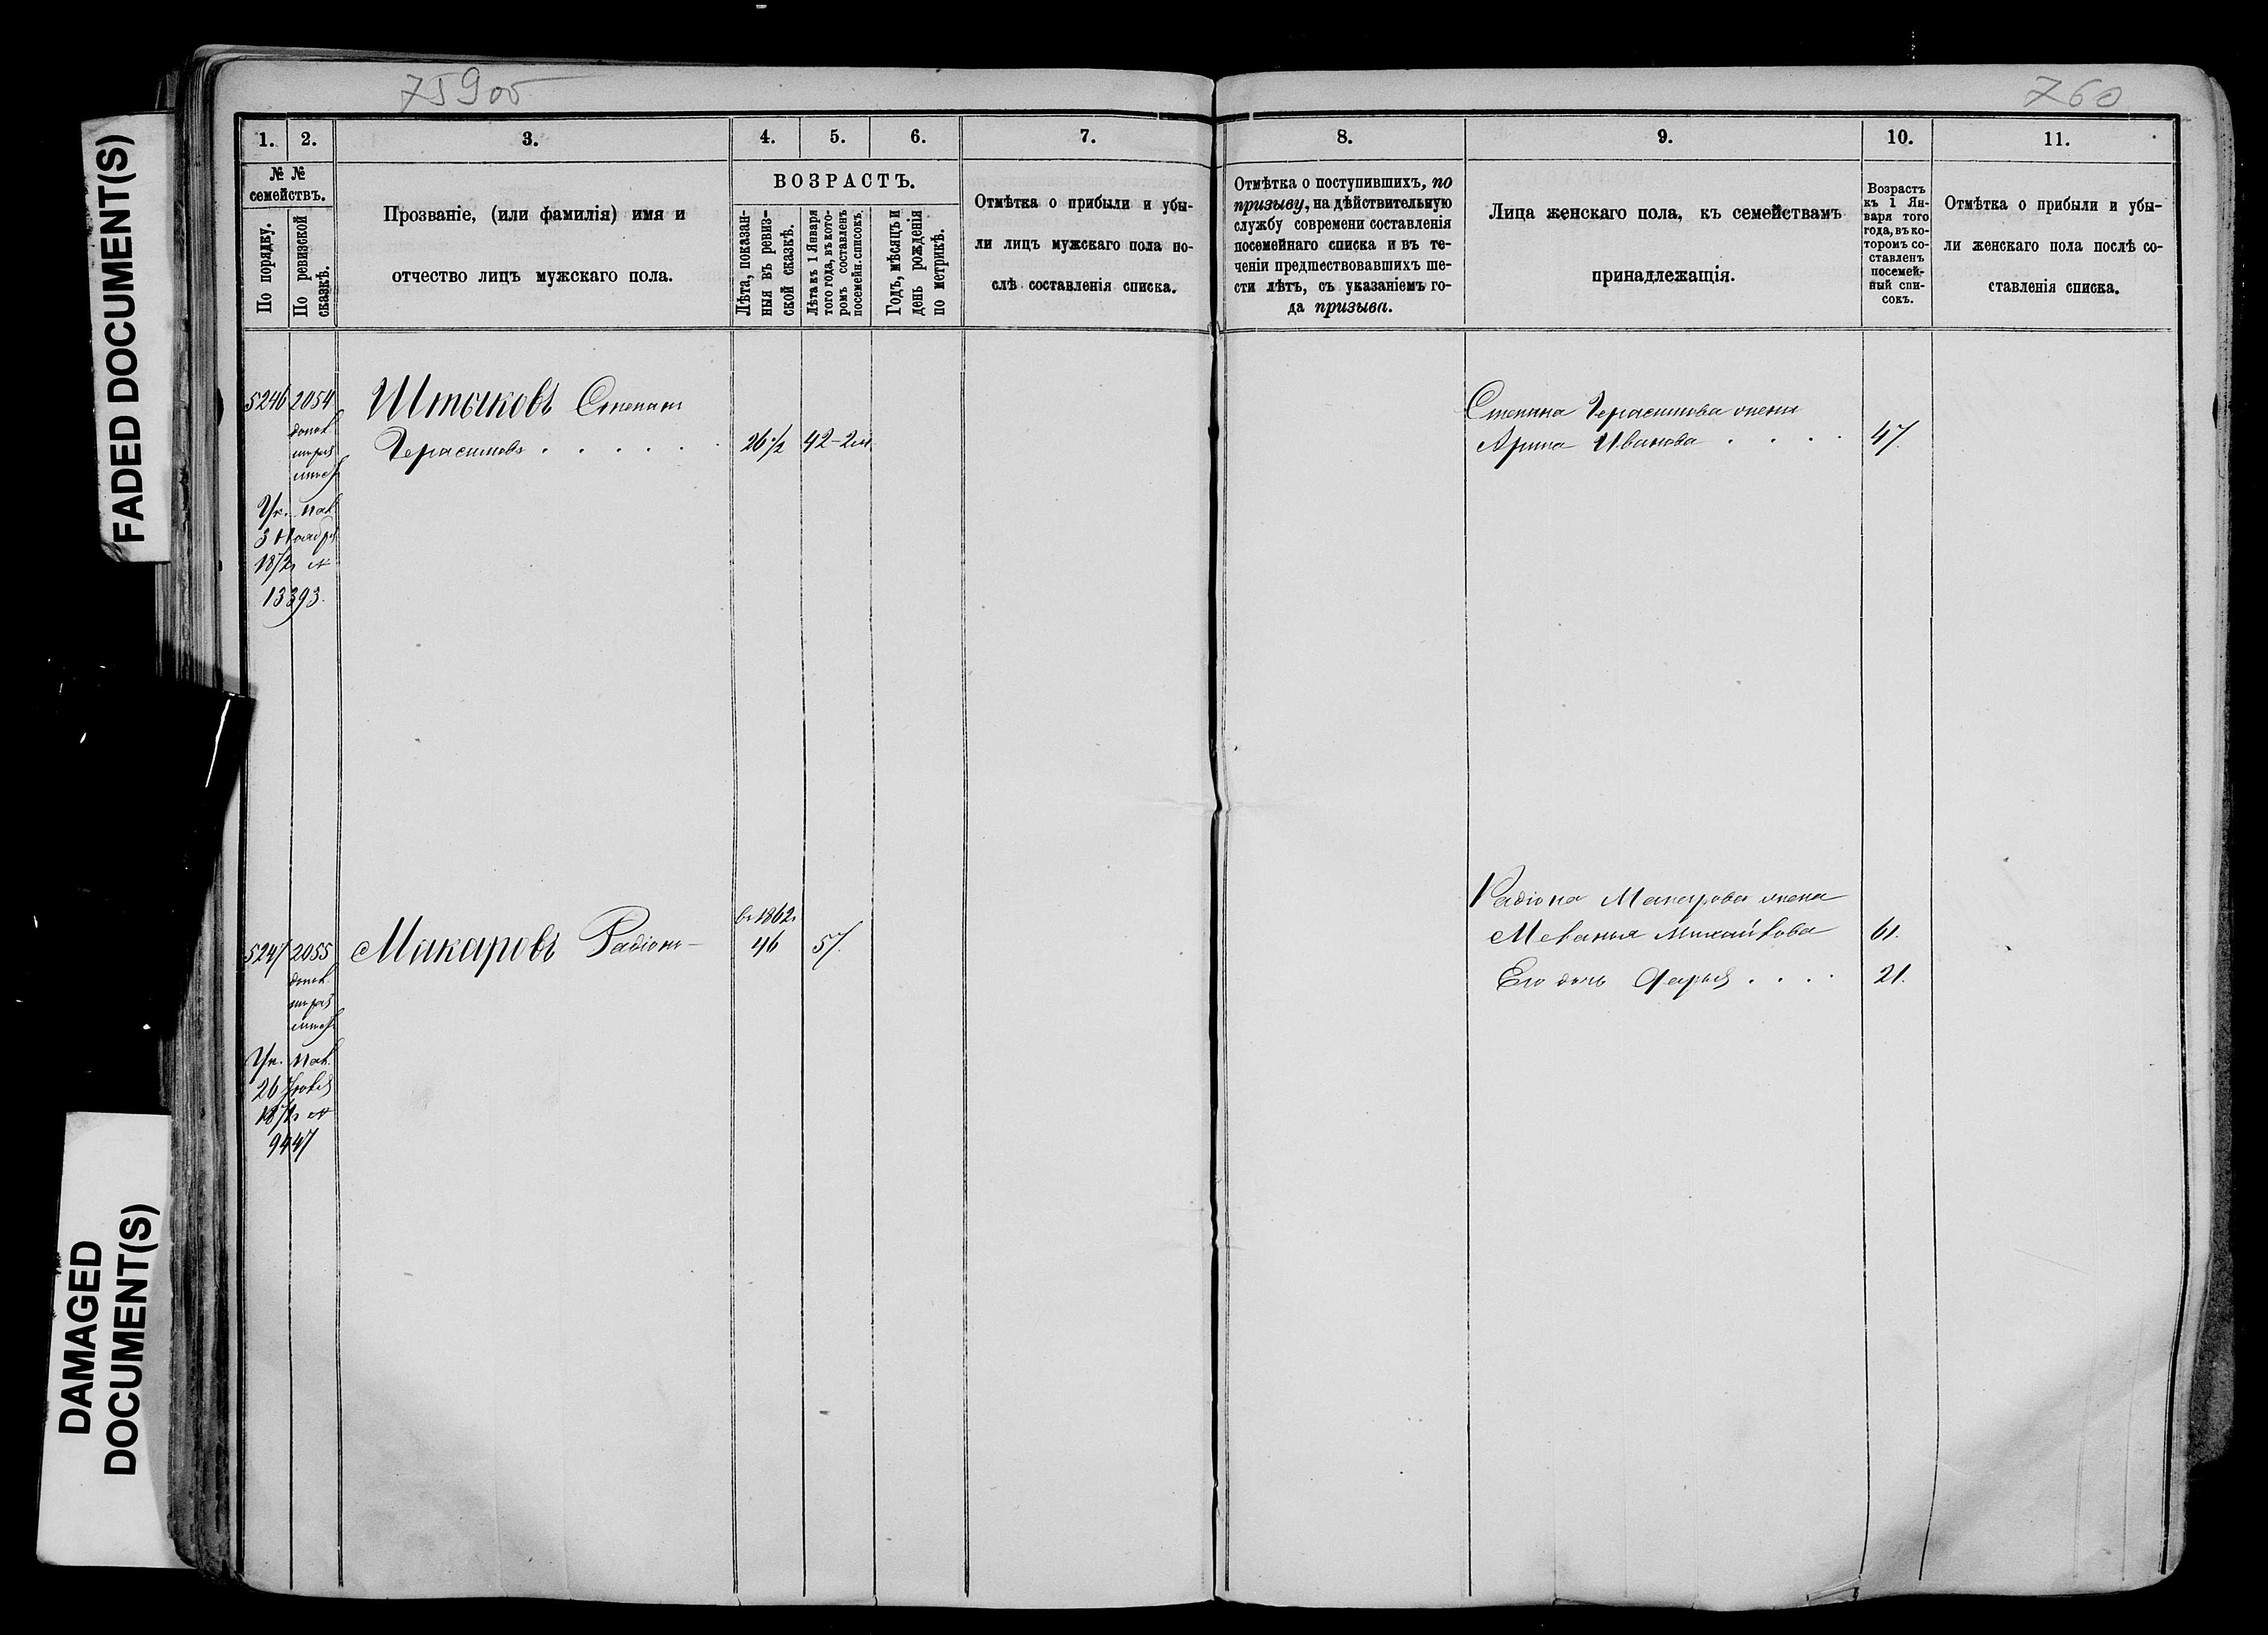 75900
760
FADED DOCUMENT(S)
DAMAGED
DOCUMENT(S)
1.
2.
3.
4.
5.
6.
7.
8.
9.
10.
11.
№ №
семействъ.
По порядку.
По ревизской
сказкѣ.
Прозваніе, (или фамилія) имя и
отчество лицъ мужскаго пола.
ВОЗРАСТЪ.
Лѣта, показан-
ныя въ ревиз-
ской сказкѣ.
Лѣта къ 1 Января
того года, въ кото-
ромъ составленъ
посемейн. списокъ.
Годъ, мѣсяцъ и
день рожденія
по метрикѣ.
Отмѣтка о прибыли и убы-
ли лицъ мужскаго пола по-
слѣ составленія списка.
Отмѣтка о поступившихъ, по
призыву, на дѣйствительную
службу современи составленія
посемейнаго списка и въ те-
ченіи предшествовавшихъ ше-
сти лѣтъ, съ указаніемъ го-
да призыва.
Лица женскаго пола, къ семействамъ
принадлежащія.
Возрастъ
къ 1 Ян-
варя того
года, въ ко-
торомъ со-
ставленъ
посемей-
ный спи-
сокъ.
Отмѣтка о прибыли и убы-
ли женскаго пола послѣ со-
ставленія списка.
5246 2054 Штыковъ Степанъ
Герасимовъ 26 1/2 42-2м
Ук. Пал.
3 Ноября
1872г №
13393.
Степана Герасимова жена
Арина Иванова 47.
5247 2055 Макаровъ Радіонъ
въ 1862г
46 57.
Ук. Пал.
26
187 г №
9447
Радіона Макарова жена
Меланья Михайлова 61.
Его дочь Дарья 21.